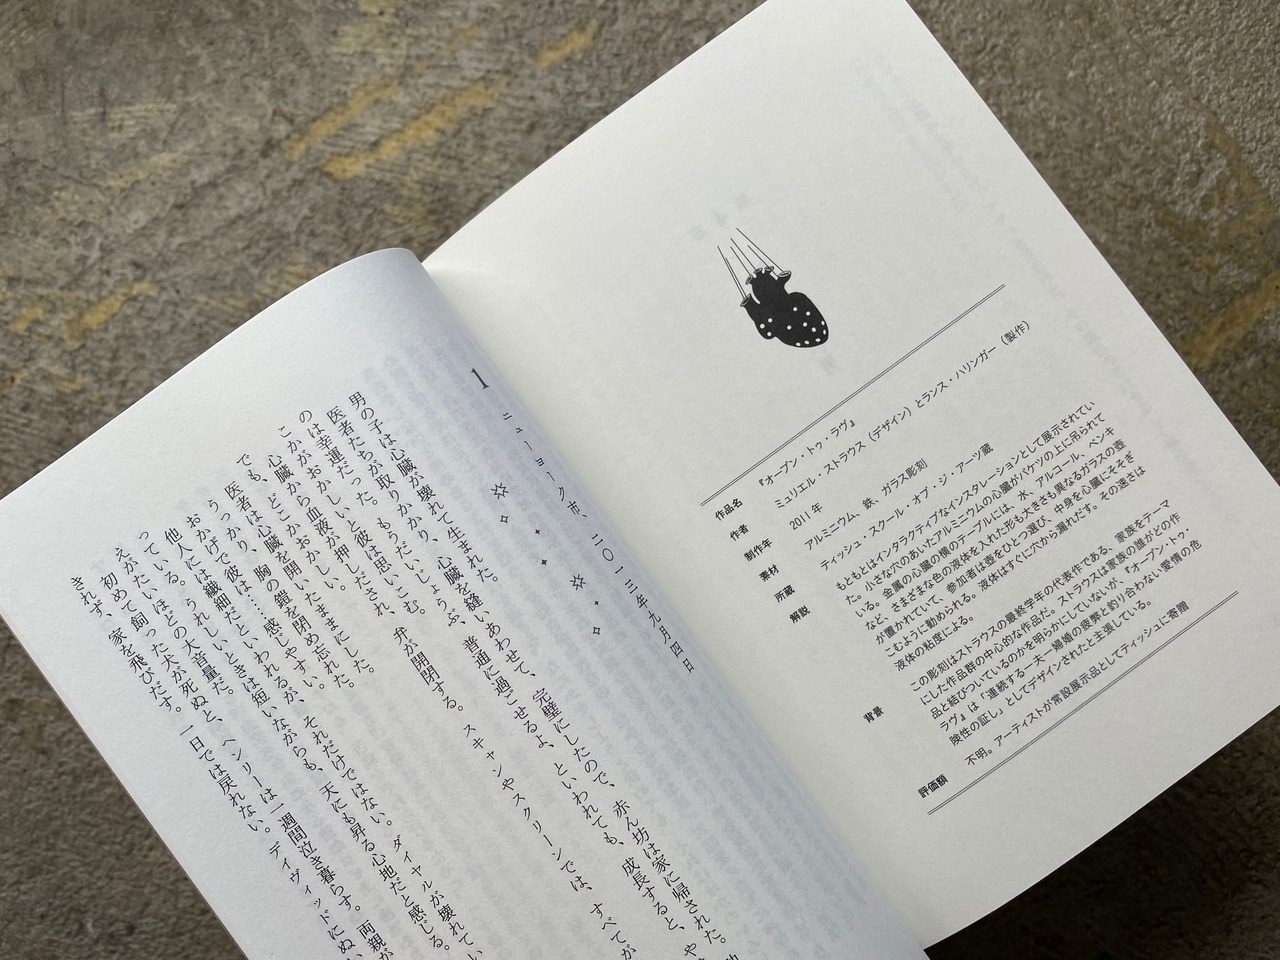 作品名 『オープン・トゥ・ラヴ』
作者 ミュリエル・ストラウス（デザイン）とランス・ハリンガー（製作）
制作年 2011年
素材 アルミニウム、鉄、ガラス彫刻
所蔵 ティッシュ・スクール・オブ・ジ・アーツ蔵
解説 もともとはインタラクティブなインスタレーションとして展示されてい
た。小さな穴のあいたアルミニウムの心臓がバケツの上に吊られて
いる。金属の心臓の横のテーブルには、水、アルコール、ペンキ
など、さまざまな色の液体を入れた形も大きさも異なるガラスの壺
が置かれていて、参加者は壺をひとつ選び、中身を心臓にそそぎ
こむように勧められる。液体はすぐに穴から漏れだす。その速さは
液体の粘度による。
背景 この彫刻はストラウスの最終学年の代表作である、家族をテーマ
にした作品群の中心的な作品だ。ストラウスは家族の誰がどの作
品と結びついているのかを明らかにしていないが、『オープン・トゥ・
ラヴ』は「連続する一夫一婦婚の疲弊と釣り合わない愛情の危
険性の証し」としてデザインされたと主張している。
評価額 不明。アーティストが常設展示品としてティッシュに寄贈
ニューヨーク市、二〇一三年九月四日
1
男の子は心臓が壊れて生まれた。
医者たちが取りかかり、心臓を縫いあわせて、完璧にしたので、赤ん坊は家に帰された。
は幸運だった、と彼は思いこむ。もうだいじょうぶ、普通に過ごせるよ、といわれても、成長すると、や
のかがおかしい。
この心臓から血液が押しだされ、弁が開閉する。スキャンやスクリーンでは、すべてが
でも、どこかおかしい。
医者は心臓を開いたままにした。
うっかり、胸の鎧を閉め忘れた。
おかげで彼は……感じやすい。
他人には繊細だといわれるが、それだけではない。ダイヤルが壊れてい
っている。うれしいときは短いながらも、天にも昇る心地だと感じる。
えがたいほどの大音量だ。
初めて飼った犬が死ぬと、ヘンリーは一週間泣き暮らす。両親が
きれず、家を飛びだす。一日では戻れない。ディヴィッドにぬい